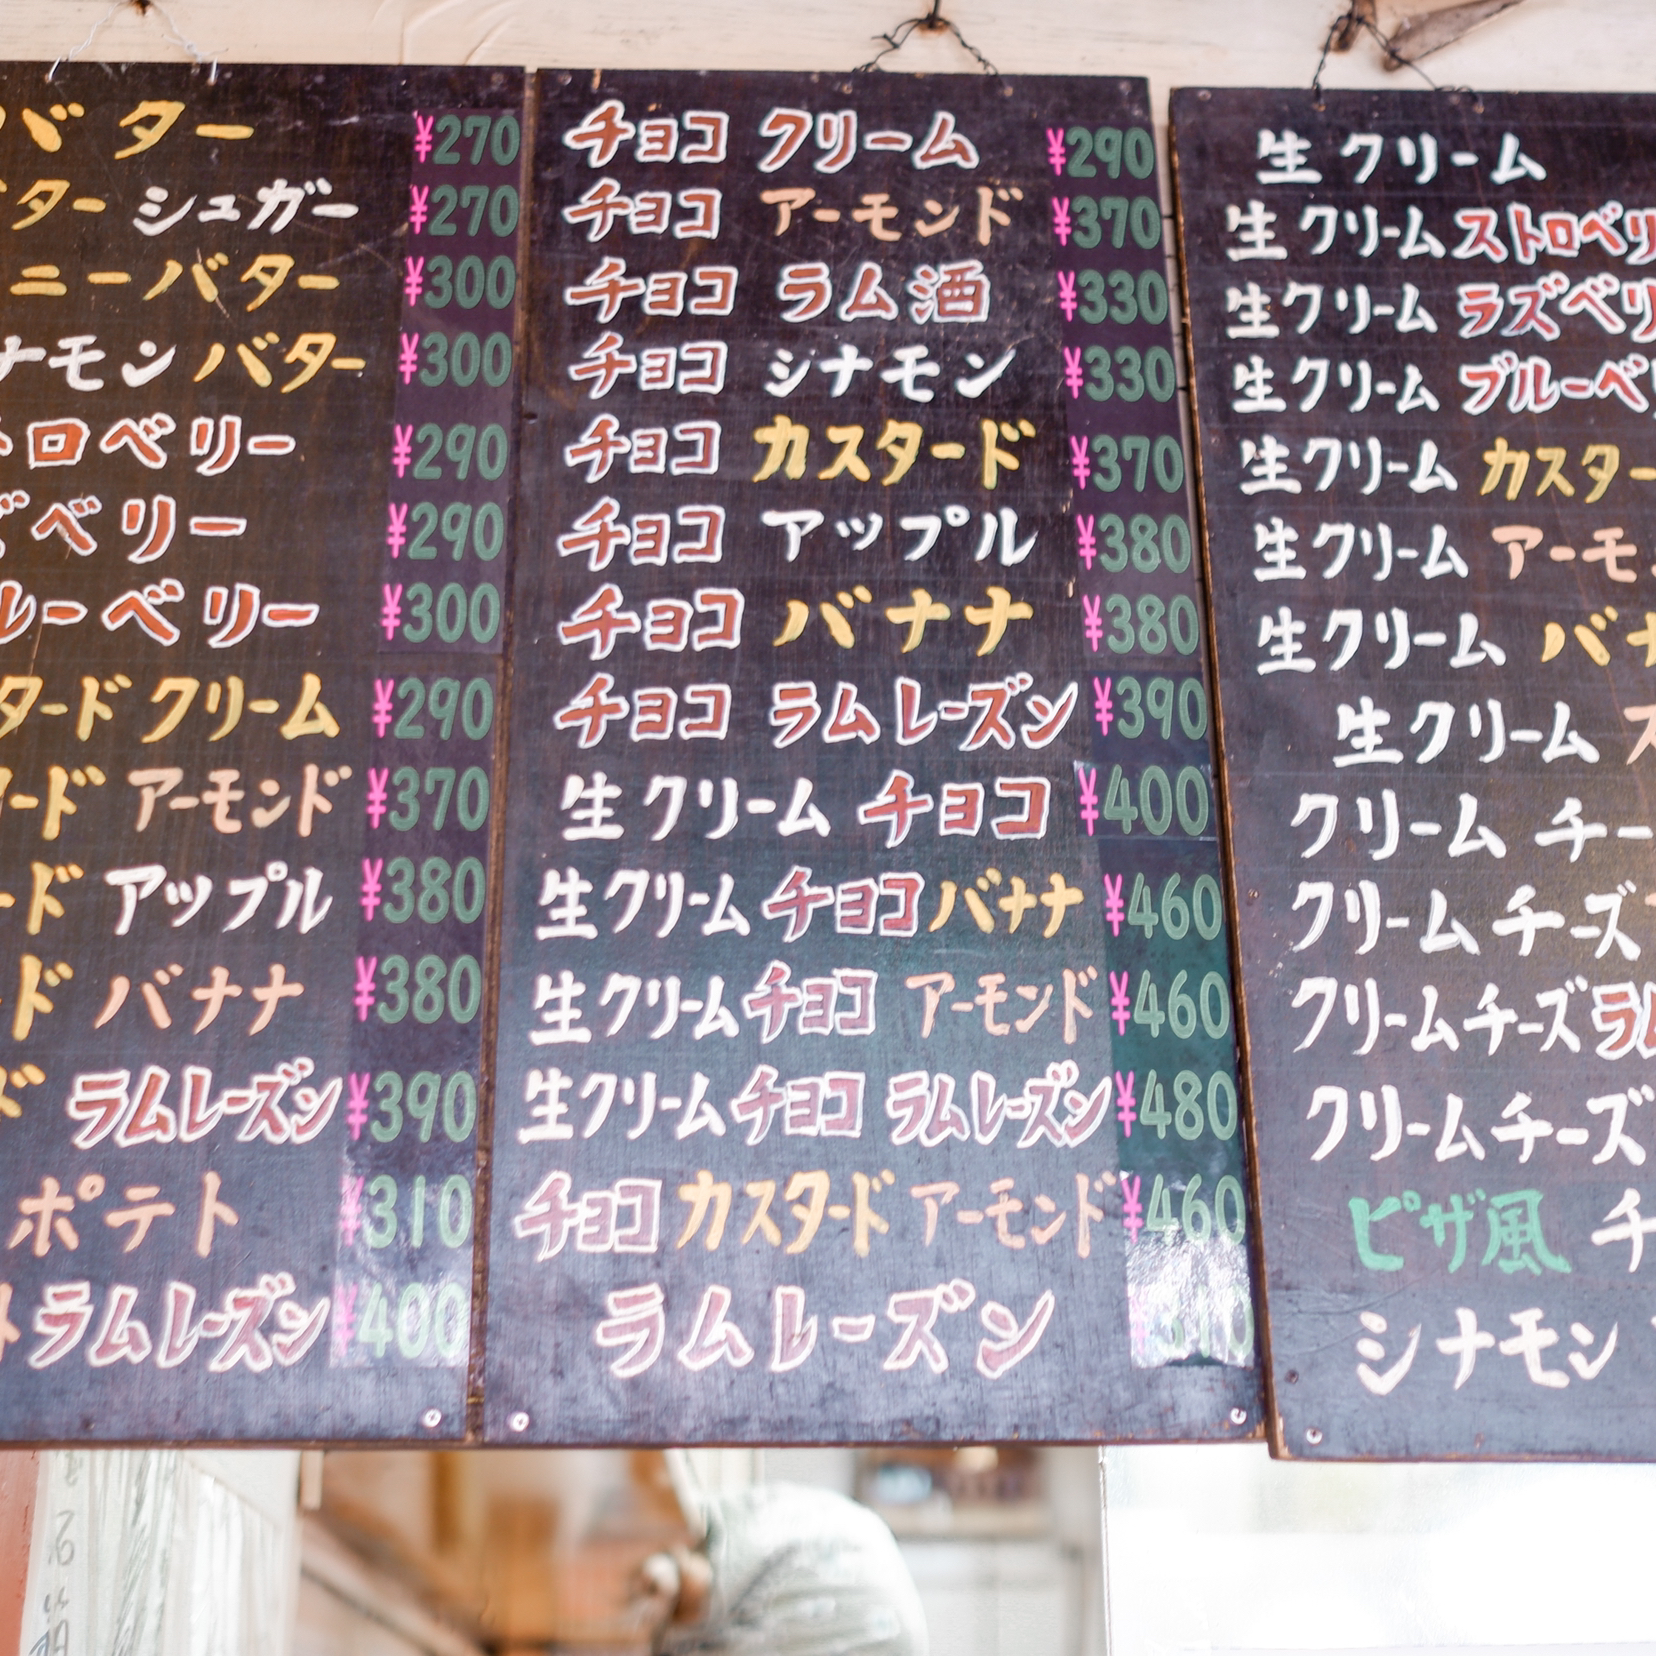 バター ¥270
ター シュガー ¥270
ニーバター ¥300
ナモン バター ¥300
ロベリー ¥290
ズベリー ¥290
ルーベリー ¥300
タード クリーム ¥290
ード アーモンド ¥370
ード アップル ¥380
ード バナナ ¥380
ラムレーズン ¥390
ポテト ¥310
ト ラムレーズン ¥400
チョコ クリーム ¥290
チョコ アーモンド ¥370
チョコ ラム酒 ¥330
チョコ シナモン ¥330
チョコ カスタード ¥370
チョコ アップル ¥380
チョコ バナナ ¥380
チョコ ラムレーズン ¥390
生クリーム チョコ ¥400
生クリーム チョコ バナナ ¥460
生クリーム チョコ アーモンド ¥460
生クリーム チョコ ラムレーズン ¥480
チョコ カスタード アーモンド ¥460
ラムレーズン ¥310
生クリーム
生クリーム ストロベリ
生クリーム ラズベリ
生クリーム ブルーベリ
生クリーム カスター
生クリーム アーモ
生クリーム バナ
生クリーム
クリーム チー
クリーム チーズ
クリームチーズ ラム
クリームチーズ
ピザ風 チ
シナモン